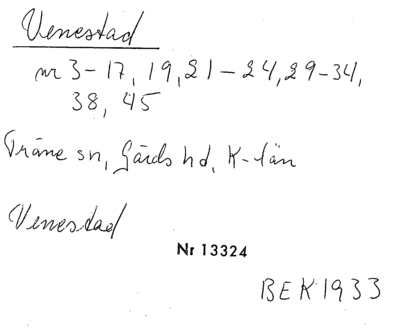 Venestad
nr 3-17, 19, 21-24, 29-34,
38, 45
Träne sn, Gärds hd, K-län
Venestad
Nr 13324
BEK 1933